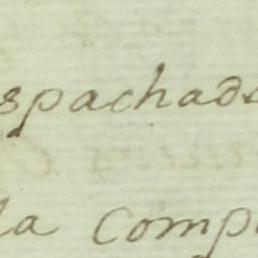 spachade
la comp